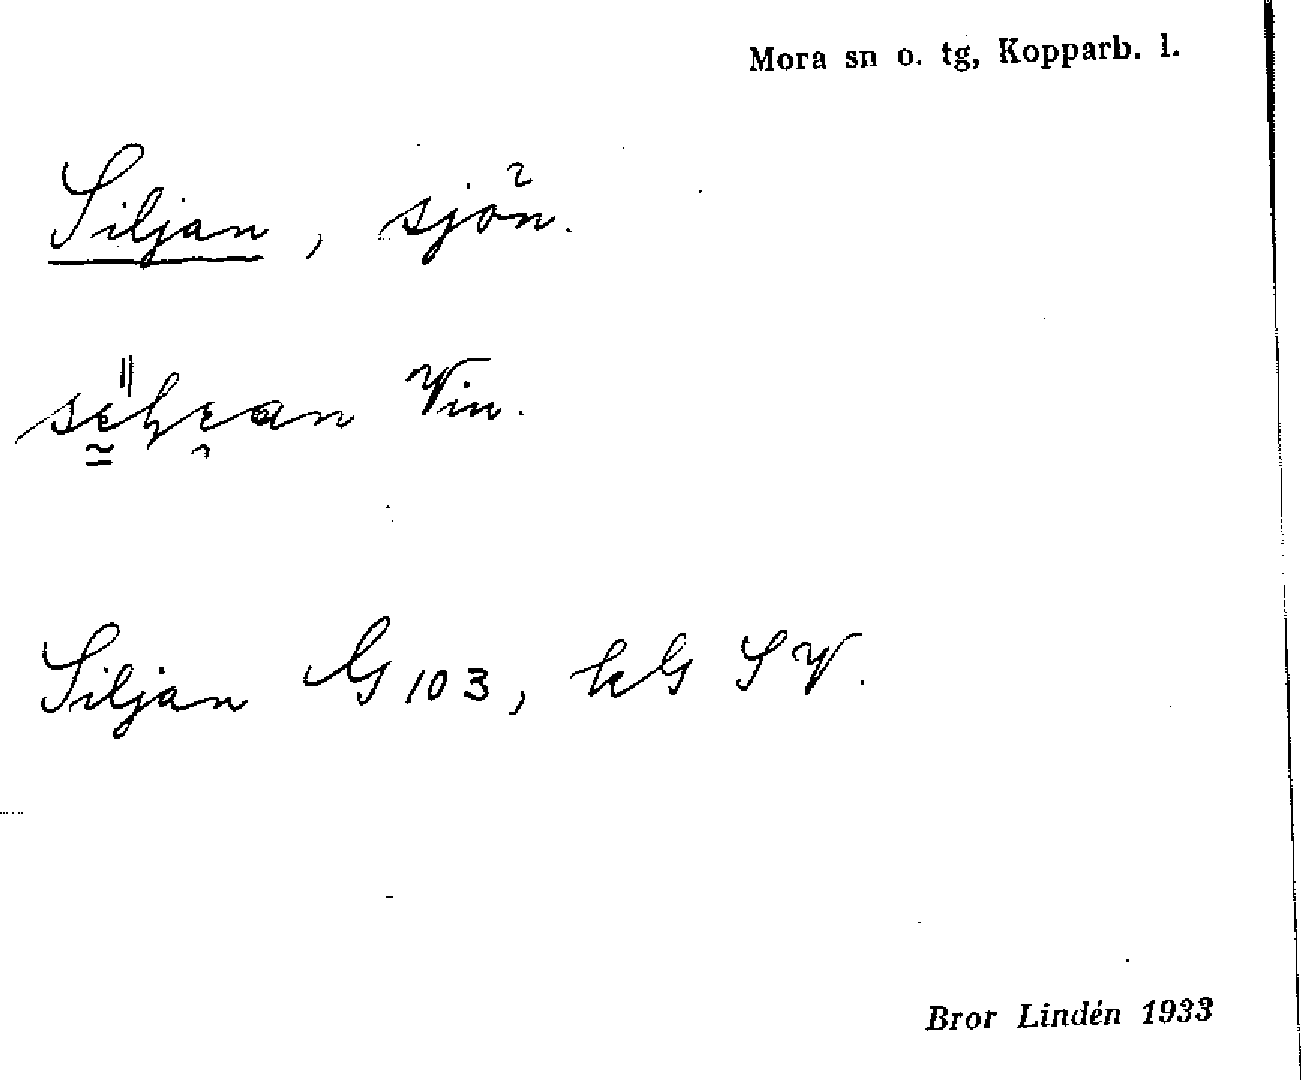 Mora sn o. tg, Kopparb. l.
Siljan, sjön.
Vin.
Siljan G 103, kG SV.
Bror Lindén 1933